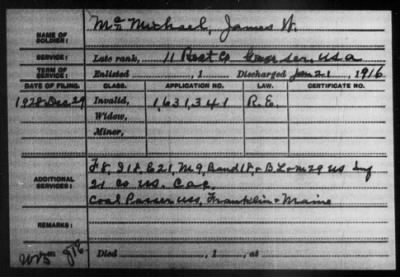 NAME OF SOLDIER: McMichael, James W.
SERVICE: Late rank, 11 Rect Co Genl Ser, U.S.A
TERM OF SERVICE: Enlisted , 1 Discharged Jan 21, 1916
DATE OF FILING. CLASS. APPLICATION NO. LAW. CERTIFICATE NO.
1928 Dec 29 Invalid, 1,631,341 R.E.
Widow,
Minor,
ADDITIONAL SERVICES: F8, I18, E21, M9, Band 18, + B L + M 29 US Inf
21 Co US. Cac.
Coal Passer USS, Franklin + Maine
REMARKS:
Died , 1 , at